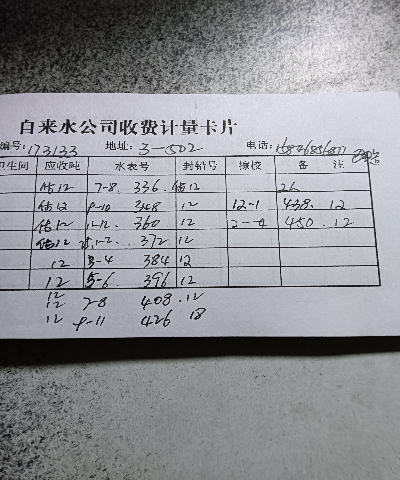 自来水公司收费计量卡片
编号: 173133 地址: 3-502 电话:
卫生间 应收吨 水表号 封铅号 撩校 备 注
估12 7-8. 336. 估12
估12 9-10 348 12 12-1 438. 12
估12 11-12. 360 12 2-4 450. 12
估12 1-2. 372 12
12 3-4 384 12
12 5-6. 396 12
12
12 7-8 408. 12
12 9-11 426 18